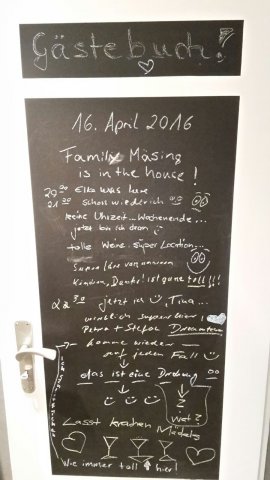 Gästebuch!
16. April 2016
Family Mäsing
is in the house!
20⁰⁰ Elke was here
21⁰⁰ Schon wieder ich
keine Uhrzeit... Wochenende...
jetzt bin ich dran
tolle Weine. Super Location...
Danke! ist ganz toll!!!
22³⁰ jetzt ich Tina...
wirklich super hier!
Petra + Stefan
→ komme wieder
auf jeden Fall
das ist eine Drohung
Lasst krachen Mädels
Wie immer toll hier!